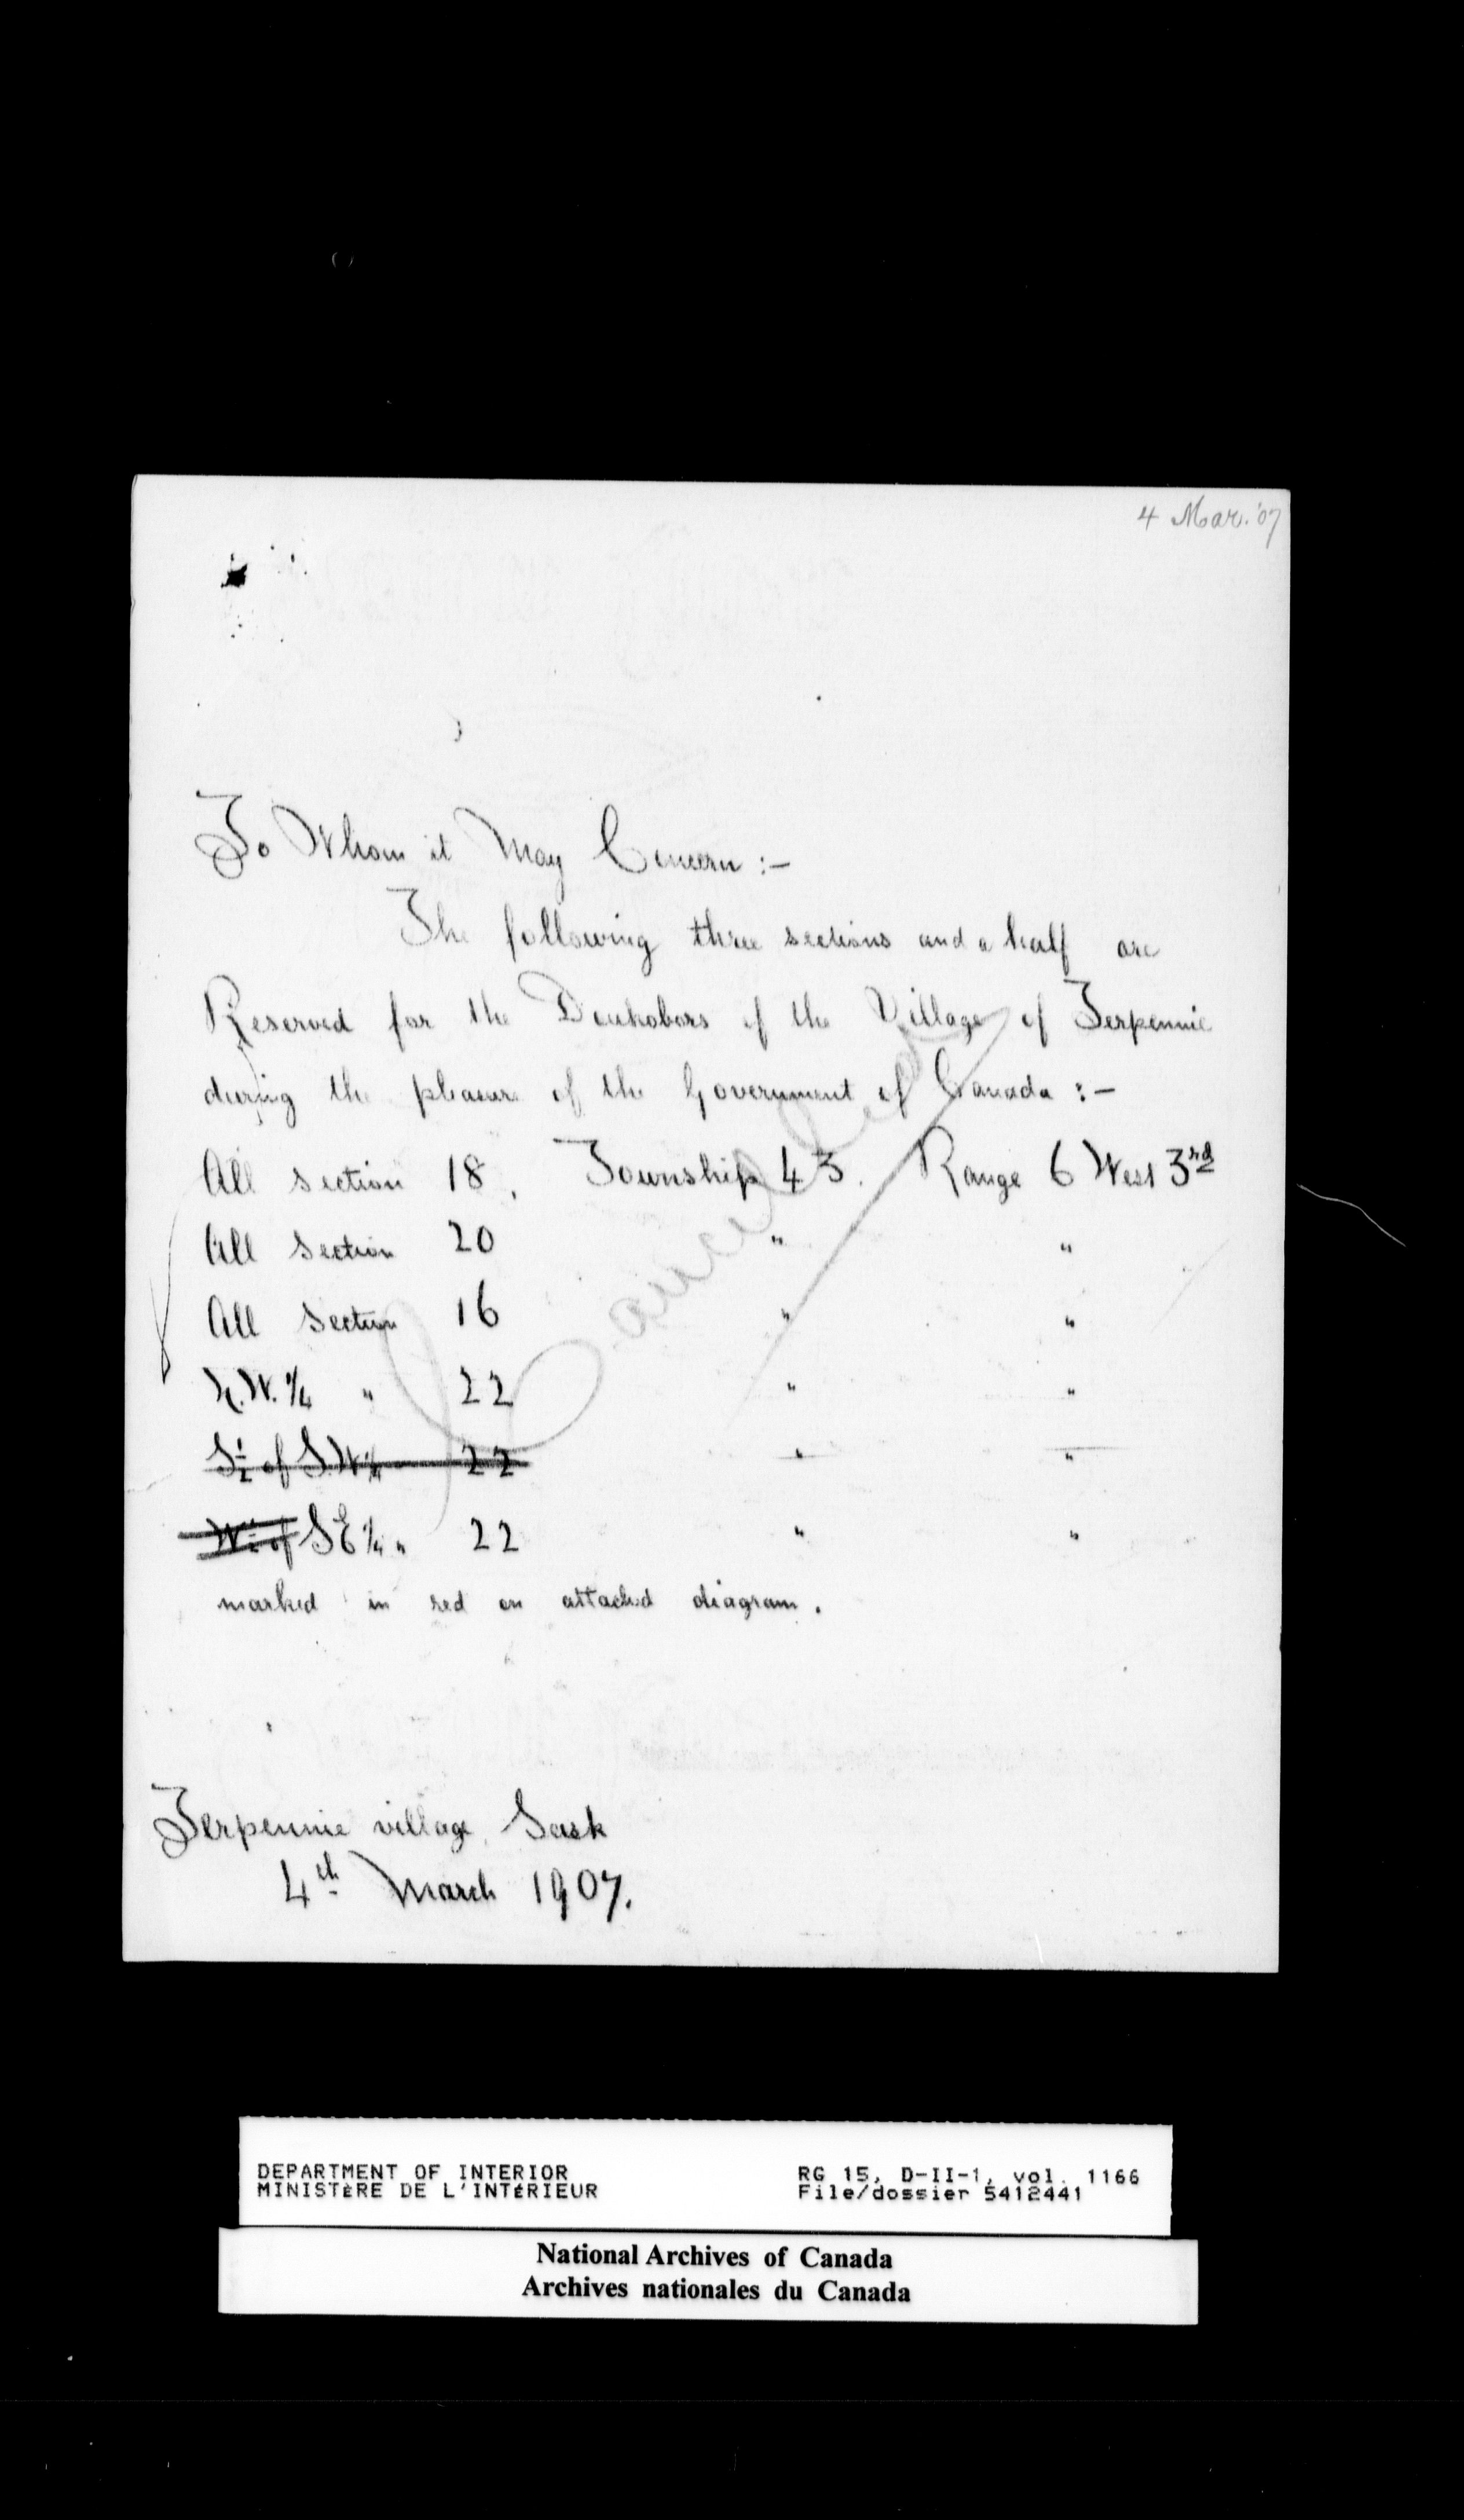 4 Mar. '07
To Whom it May Concern :-
The following three sections and a half are
Reserved for the Doukobors of the Village of Terpennie
during the pleasure of the Government of Canada :-
All section 18, Township 43. Range 6 West 3rd
All section 20 " "
All section 16 " "
N.W. 1/4 " 22 " "
S 1/2 of S.W 1/4 22 " "
W 1/2 of S E 1/4 " 22 " "
marked in red on attached diagram.
Cancelled
Terpennie village, Sask
4th March 1907.
DEPARTMENT OF INTERIOR RG 15, D-II-1, vol. 1166
MINISTÈRE DE L'INTÉRIEUR File/dossier 5412441
National Archives of Canada
Archives nationales du Canada